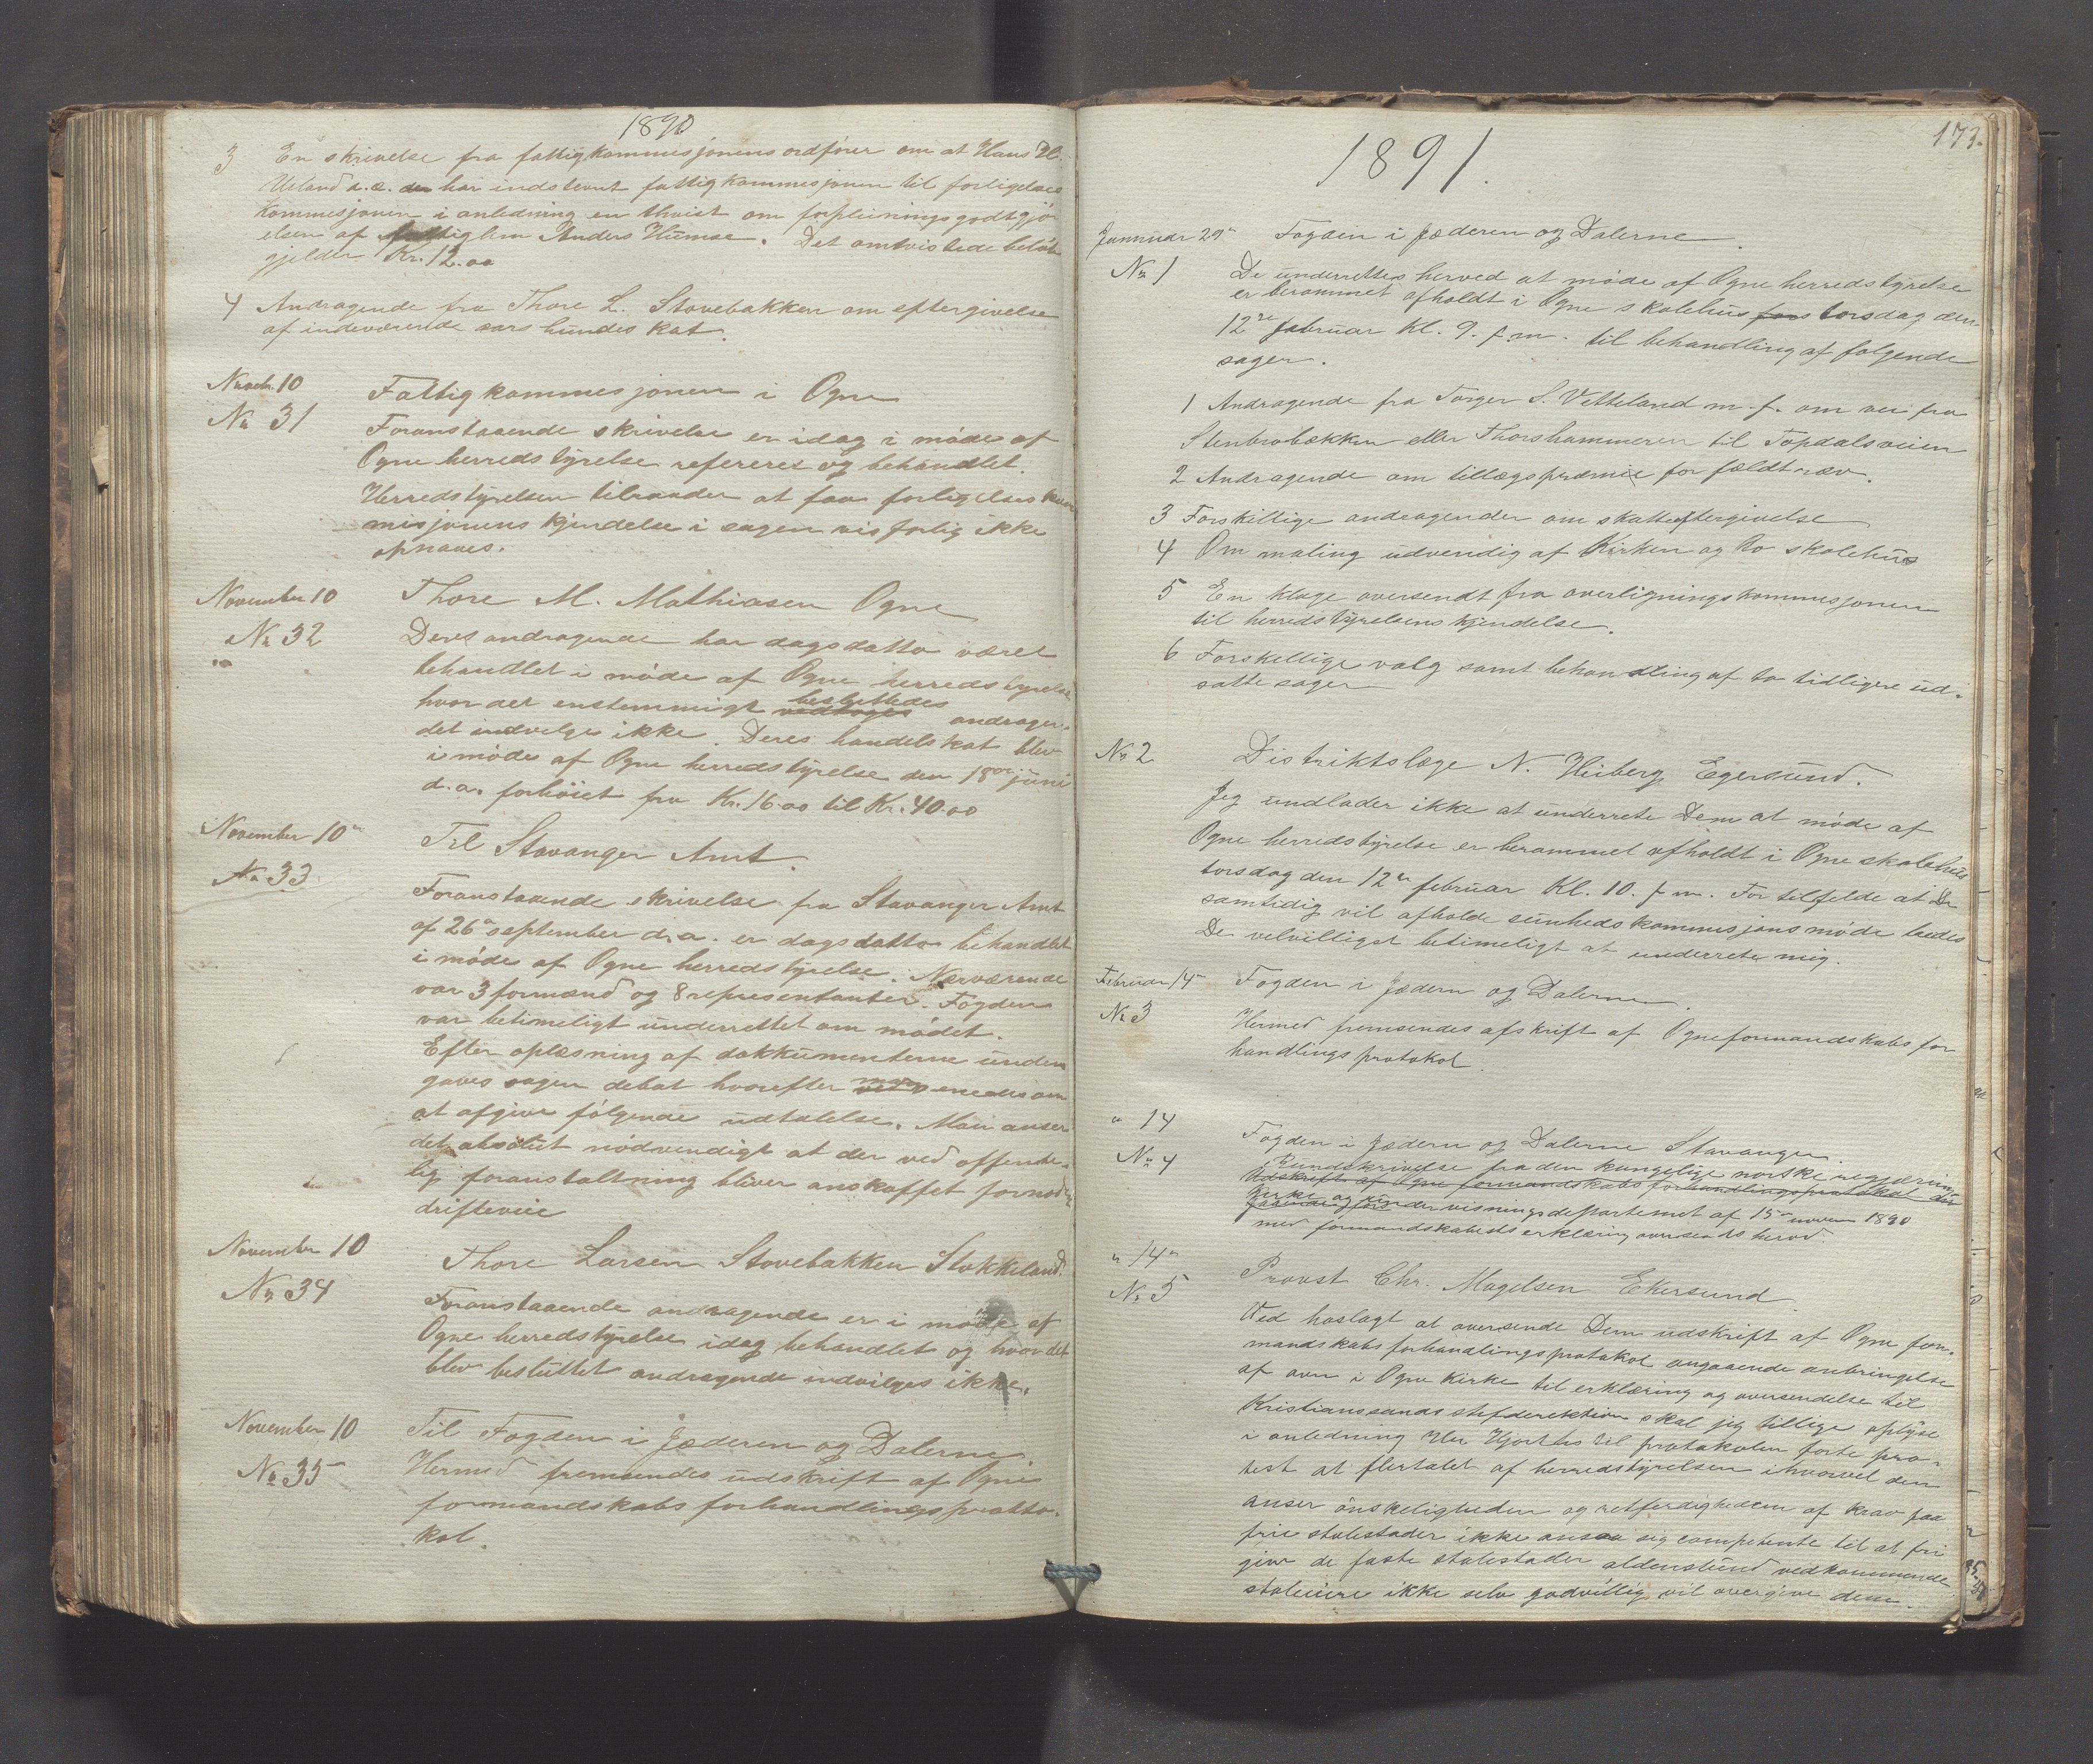 1890
3 En skrivelse fra fattigkommesjonens ordfører om at Hans H.
Ueland d. æ. har indstevnt fattigkommesjonen til forligelses
kommesjonen i anledning en thvist om forpleiningsgodtgjø
elsen af fattiglem Anders Hümse. Det omtvistede beløb
gjelder Kr. 12.00
4 Andragende fra Thore L. Stovebakken om eftergivelse
af indeværende aars hundeskat.
Novebr. 10
No 31
Fattigkommesjonen i Ogne
Foranstaaende skrivelse er idag i møde af
Ogne herredstyrelse refereret og behandlet.
Herredstyrelsen tilraader at faa forligelses kom
misjonens kjendelse i sagen vis forlig ikke
opnaaes.
November 10
No 32
Thore M. Mathiasen Ogne
Deres andragende har dagsdatto været
behandlet i møde af Ogne herredstyrelse
hvor det enstemmigt besluttedes vedtoges andragen-
det indvelges ikke. Deres handelskat blev
i møde af Ogne herredstyrelse den 18de juni
d.a. forhøiet fra Kr. 16.00 til Kr. 40.00
November 10
No 33
Til Stavanger Amt
Foranstaaende skrivelse fra Stavanger Amt
af 26de september d.a. er dagsdatto behandlet
i møde af Ogne herredstyrelse. Nærværende
var 3 formænd og 8 representanter. Fogden
var betimeligt underrettet om mødet.
Efter oplæsning af dokkumenterne ünder
gaves sagen debat hvorefter man enedes om
at afgive følgende üdtalelse. Man anser
det absolut nødvendigt at der ved offent-
lig foranstaltning bliver anskaffet fornøden
drifteveie
November 10
No 34
Thore Larsen Stovebakken Stokkeland.
Foranstaaende andragende er i møde af
Ogne herredstyrelse idag behandlet og hvor det
blev beslüttet andragende indvilges ikke.
November 10
No 35
Til Fogden i Jæderen og Dalerne
Hermed fremsendes udskrift af Ogne
formandskabs forhandlingsprotto-
kol.
173.
1891.
Januar 29de
No 1
Fogden i Jæderen og Dalerne.
De ünderrettes herved at møde af Ogne herredstyrelse
er berammet afholdt i Ogne skolehus torsdag den
12te februar Kl. 9. f.m. til behandling af følgende
sager.
1 Andragende fra Torger S. Vetteland m.f. om vei fra
Stenbrobækken eller Thorshammeren til Topdalsveien
2 Andragende om tillægspræmie for fældt ræv.
3 Forskillige andragender om skatteftergivelse
4 Om maling üdvendig af Kirken og Bo skolehüs
5 En klage oversendt fra overligningskommesjonen
til herredstyrelsens kjendelse.
6 Forskellige valg samt behandling af to tidligere üd-
satte sager
No 2
Distriktslæge N. Heiberg Egersund.
Jeg undlader ikke at underrete Dem at møde af
Ogne herredstyrelse er berammet afholdt i Ogne skolehüs
torsdag den 12te februar Kl. 10. f.m. For tilfelde at De
samtidig vil afholde sünhedskommesjons møde bedes
De velvilligst betimeligt at underrete mig.
Februar 14de
No 3
Fogden i Jædern og Dalerne.
Hermed fremsendes afskrift af Ogneformandskabs for
handlingsprotokol.
" 14
No 4
Fogden i Jædern og Dalerne Stavanger.
Rundskrivelse fra den kongelige norske regjerin
Udskrift af Ogne formandskabs forhandlingsprotokol
Kirke og undervisningsdepartemet af 15de novem 1890
med formandskabets erklæring oversendes herved.
" 14de
No 5
Provst Chr. Magelsen Ekersund.
Ved hoslagt at oversende Dem udskrift af Ogne for-
mandskabs forhandlingsprotokol angaaende anbringelse
af ovn i Ogne Kirke til erklæring og oversendelse til
Kristianssands stifderektion skal jeg tillige oplyse
i anledning Hr Hjorths til protokolen førte pro-
test at flertalet af herredstyrelsen ihvorvel den
anser ønskeligheden og retferdigheden af krav paa
frie stolestader ikke ansaa sig competente til at fri
give de faste stolestader aldenstünd vedkommende
stoleiere ikke selv godvillig vil overgive dem.